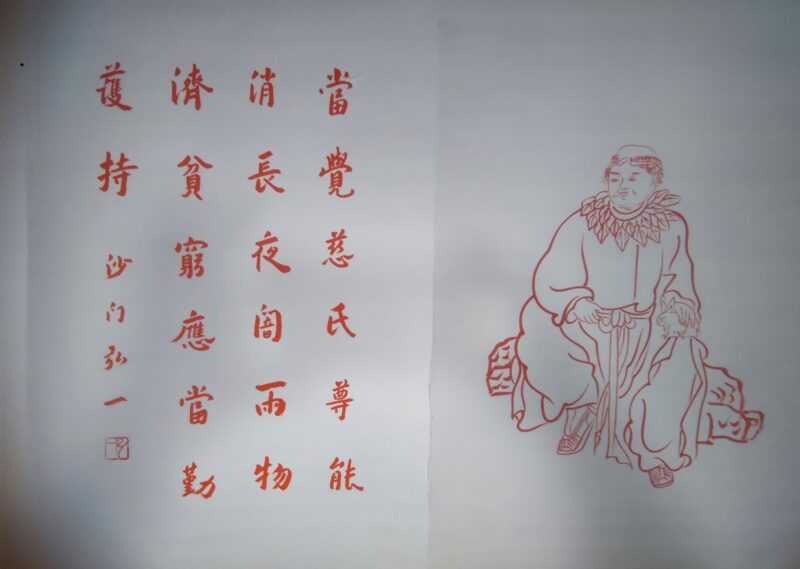 當覺慈氏尊能
消長夜闇雨物
濟貧窮應當勤
護持
沙门弘一